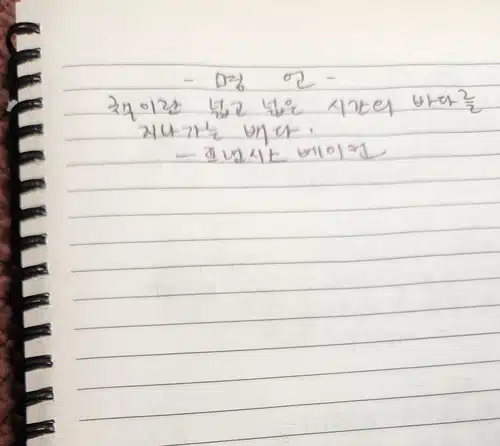 - 명 언 -
책이란 넓고 넓은 시간의 바다를
지나가는 배다.
- 프랜시스 베이컨